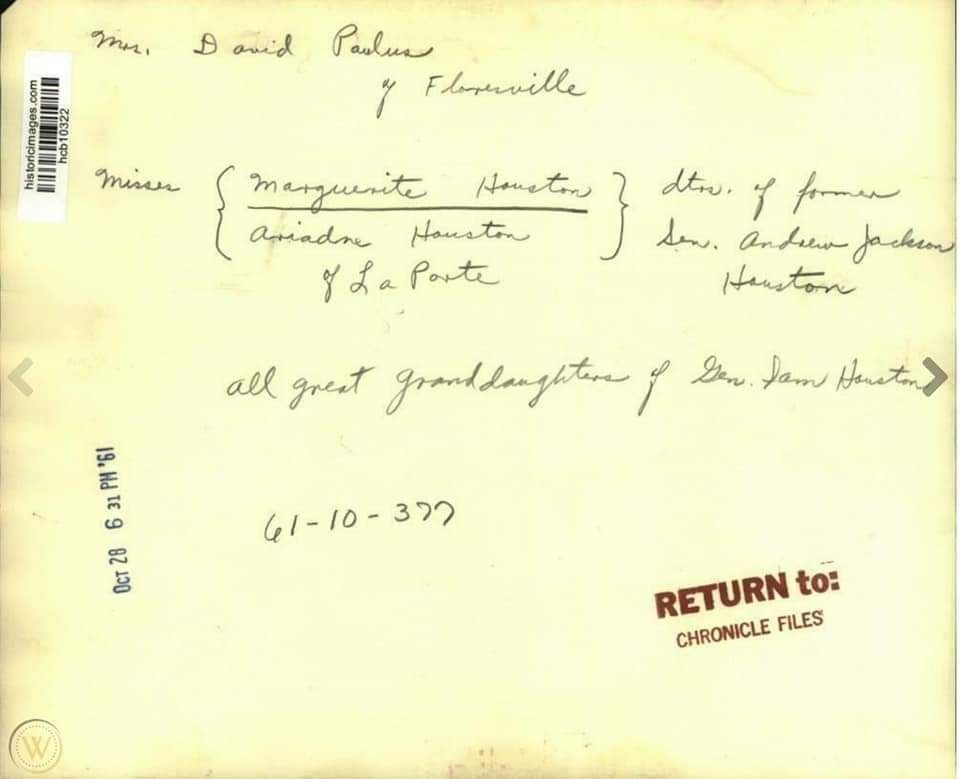 Mrs. David Paulus
of Floresville
historicimages.com
hcb10322
Misses { Marguerite Houston } dtrs. of former
Ariadne Houston Sen. Andrew Jackson
of La Porte Houston
all great granddaughters of Gen. Sam Houston
OCT 28 6 31 PM '61
61-10-377
RETURN to:
CHRONICLE FILES
W